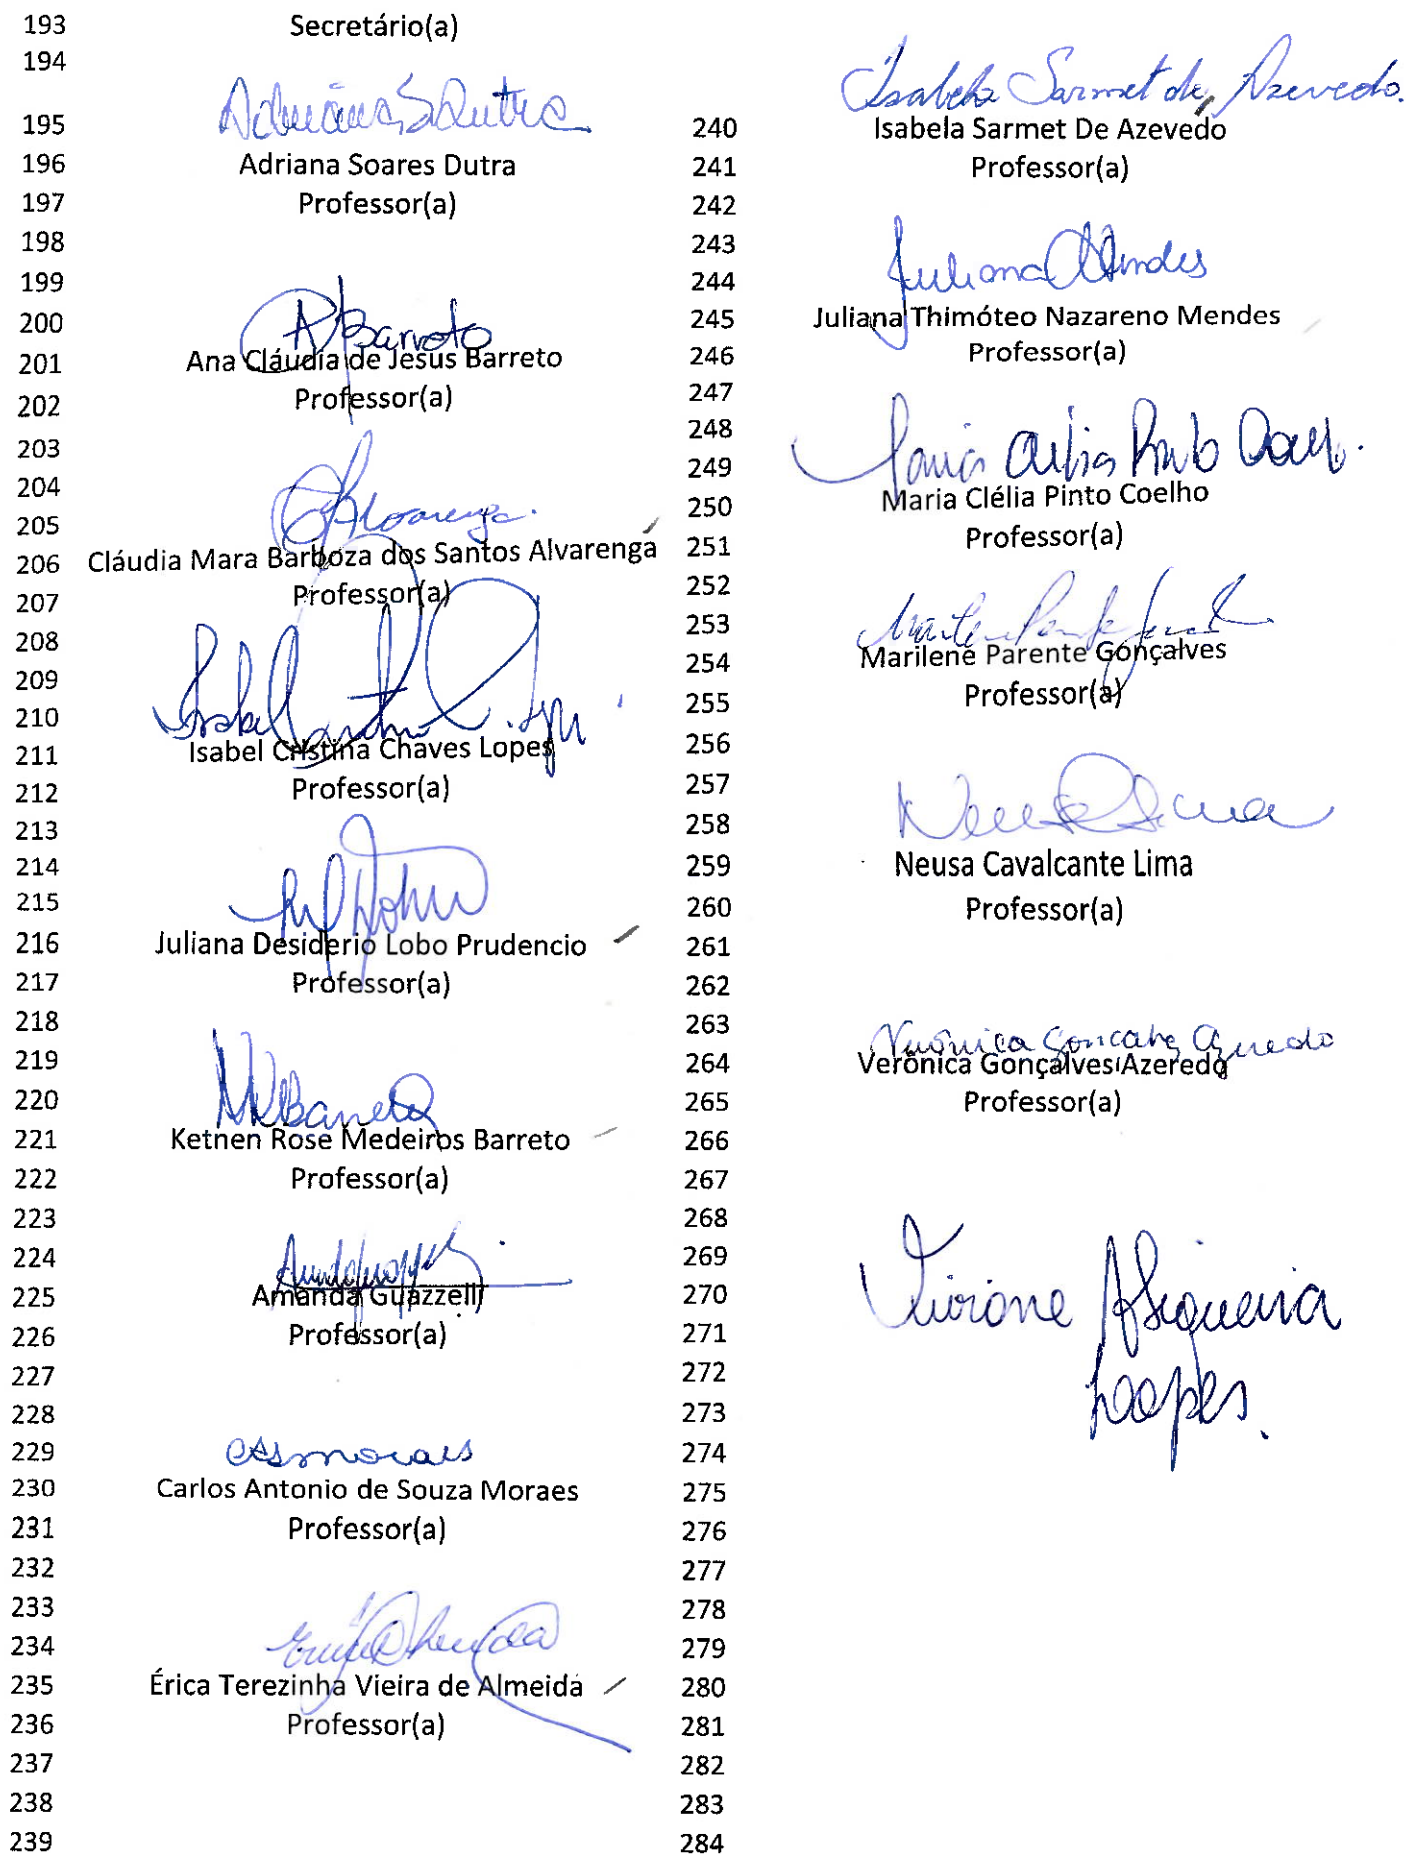 193 Secretário(a)
194
195 Adriana S Dutra
196 Adriana Soares Dutra
197 Professor(a)
198
199
200 Barreto
201 Ana Cláudia de Jesus Barreto
202 Professor(a)
203
204
205 Alvarenga.
206 Cláudia Mara Barboza dos Santos Alvarenga
207 Professor(a)
208
209
210 Isabel Cristina C. Lopes
211 Isabel Cristina Chaves Lopes
212 Professor(a)
213
214
215
216 Juliana Desiderio Lobo Prudencio
217 Professor(a)
218
219
220 Barreto
221 Ketnen Rose Medeiros Barreto
222 Professor(a)
223
224
225 Amanda Guazzelli
226 Professor(a)
227
228
229 CASmoraes
230 Carlos Antonio de Souza Moraes
231 Professor(a)
232
233
234
235 Érica Terezinha Vieira de Almeida
236 Professor(a)
237
238
239
Isabela Sarmet de Azevedo.
240 Isabela Sarmet De Azevedo
241 Professor(a)
242
243
244 Juliana Mendes
245 Juliana Thimóteo Nazareno Mendes
246 Professor(a)
247
248
249 Maria Clélia Pinto Coelho.
250 Maria Clélia Pinto Coelho
251 Professor(a)
252
253 Marilene Parente
254 Marilene Parente Gonçalves
255 Professor(a)
256
257
258 Neusa Lima
259 Neusa Cavalcante Lima
260 Professor(a)
261
262
263 Verônica Gonçalves Azeredo
264 Verônica Gonçalves Azeredo
265 Professor(a)
266
267
268
269
270 Viviane A Siqueira
271
272
273 Lopes.
274
275
276
277
278
279
280
281
282
283
284